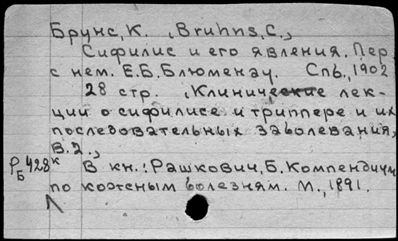 Брунс, К. (Bruhns, C.,)
Сифилис и его явления. Пер.
с нем. Е.Б. Блюменау. Спб., 1902
28 стр. (Клинические лек-
ции о сифилисе и триппере и их
последовательных заболевания,
в. 2.,)
Рб 428к В кн.: Рашкович, Б. Компендиум
по кожным болезням. М., 1891.